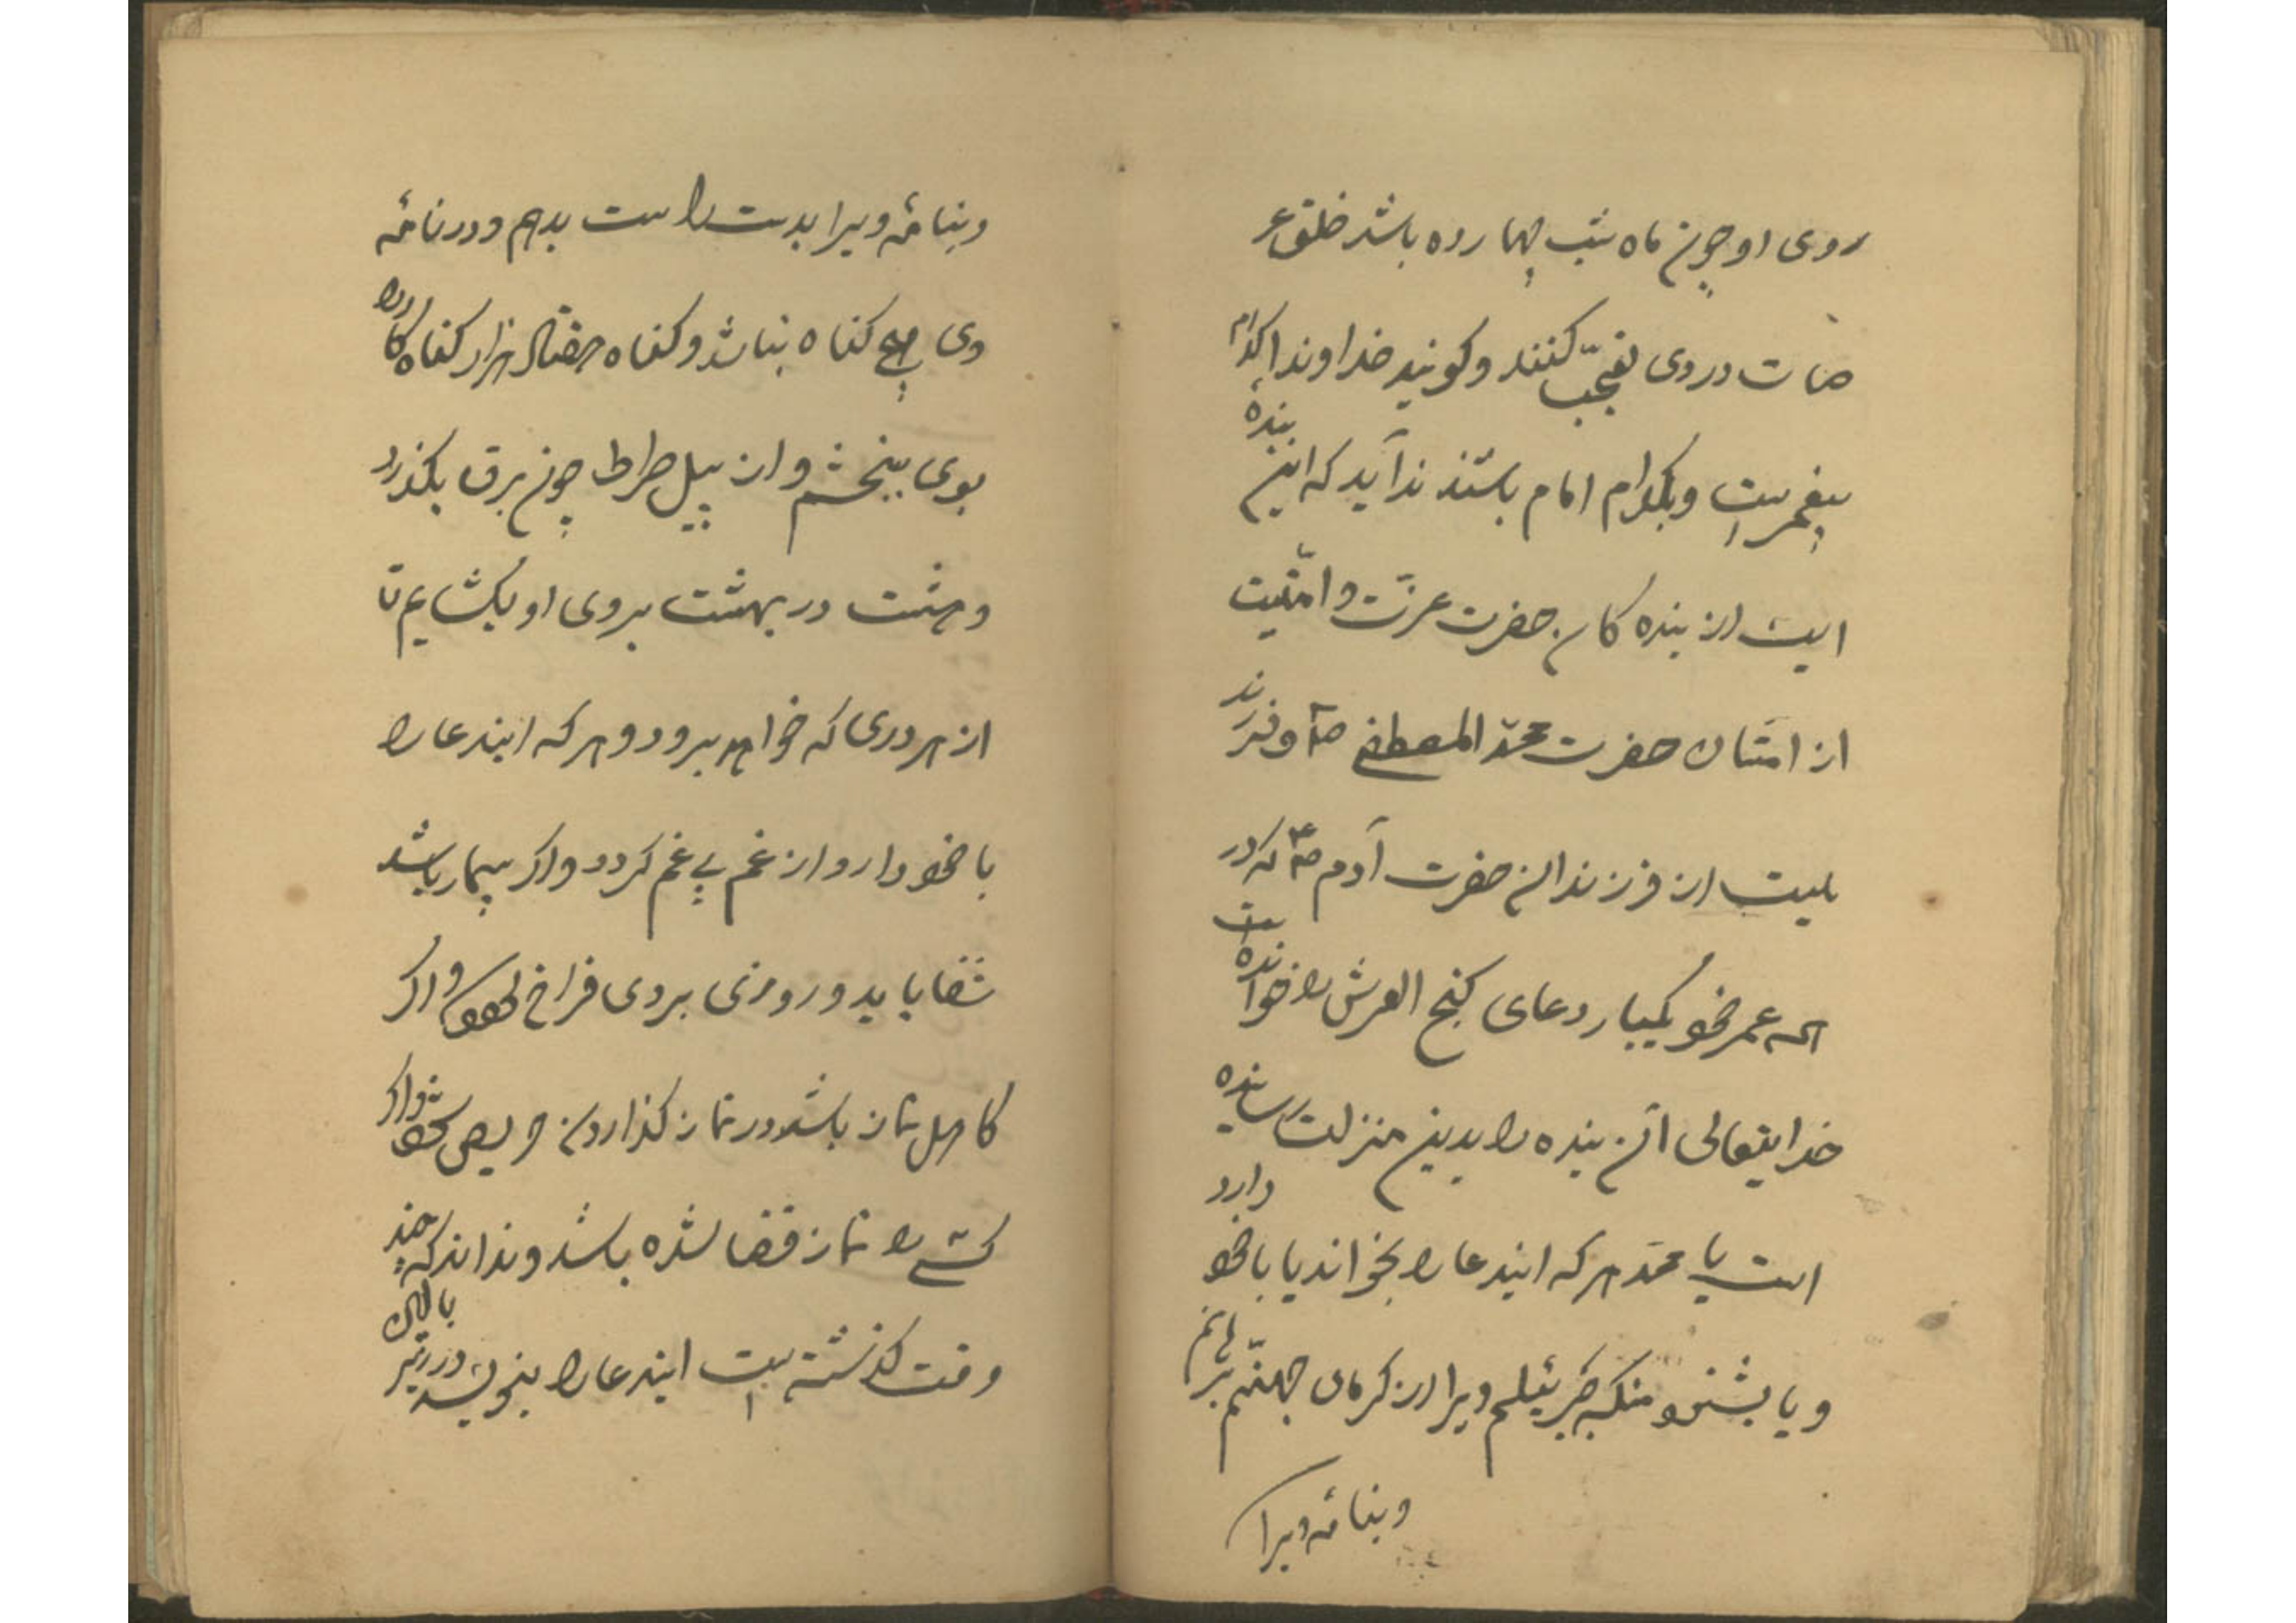 روی او چون ماه شب چهارده باشد خلق عر
صات در وی تعجّب کنند و کویند خداوندا کدام
پیغمبرست و بکدام امام باشند ندا آید که این بندهٔ
ایست از بنده کان حضرت عزّت و امّتیست
از امّتان حضرت محمّد المصطفی صم و فرزند
یست از فرزندان حضرت آدم صم که در
همه عمر خود یکبار دعای کنج العرش را خوانده است
خدایتعالی آن بنده را بدین منزلت رسانیده
است یا محمّد هر که ایندعا را بخواند یا با خود دارد
و یا بشنود منکه جبرئیلم ویرا از کرمای جهنّم برهانم
و بنامهٔ ویرا
و بنامهٔ ویرا بدست راست بدهم و در نامهٔ
وی هیچ کناه نباشد و کناه هفتاد هزار کناه کار را
بوی ببخشم و از پیل صراط چون برق بکذرد
و هشت در بهشت بروی او بکشایم تا
از هر دری که خواهد برود و هر که ایندعا را
با خود دارد از غم بی غم کردد و اکر بیمار باشد
شفا یابد و روزی بروی فراخ شود و اکر
کاهل نماز باشد در نماز کذاردن حریص شود و اکر
کسی را نماز قضا شده باشد و نداند که چند
وقت کذشته است ایندعا را بنویسد و در زیر بالای